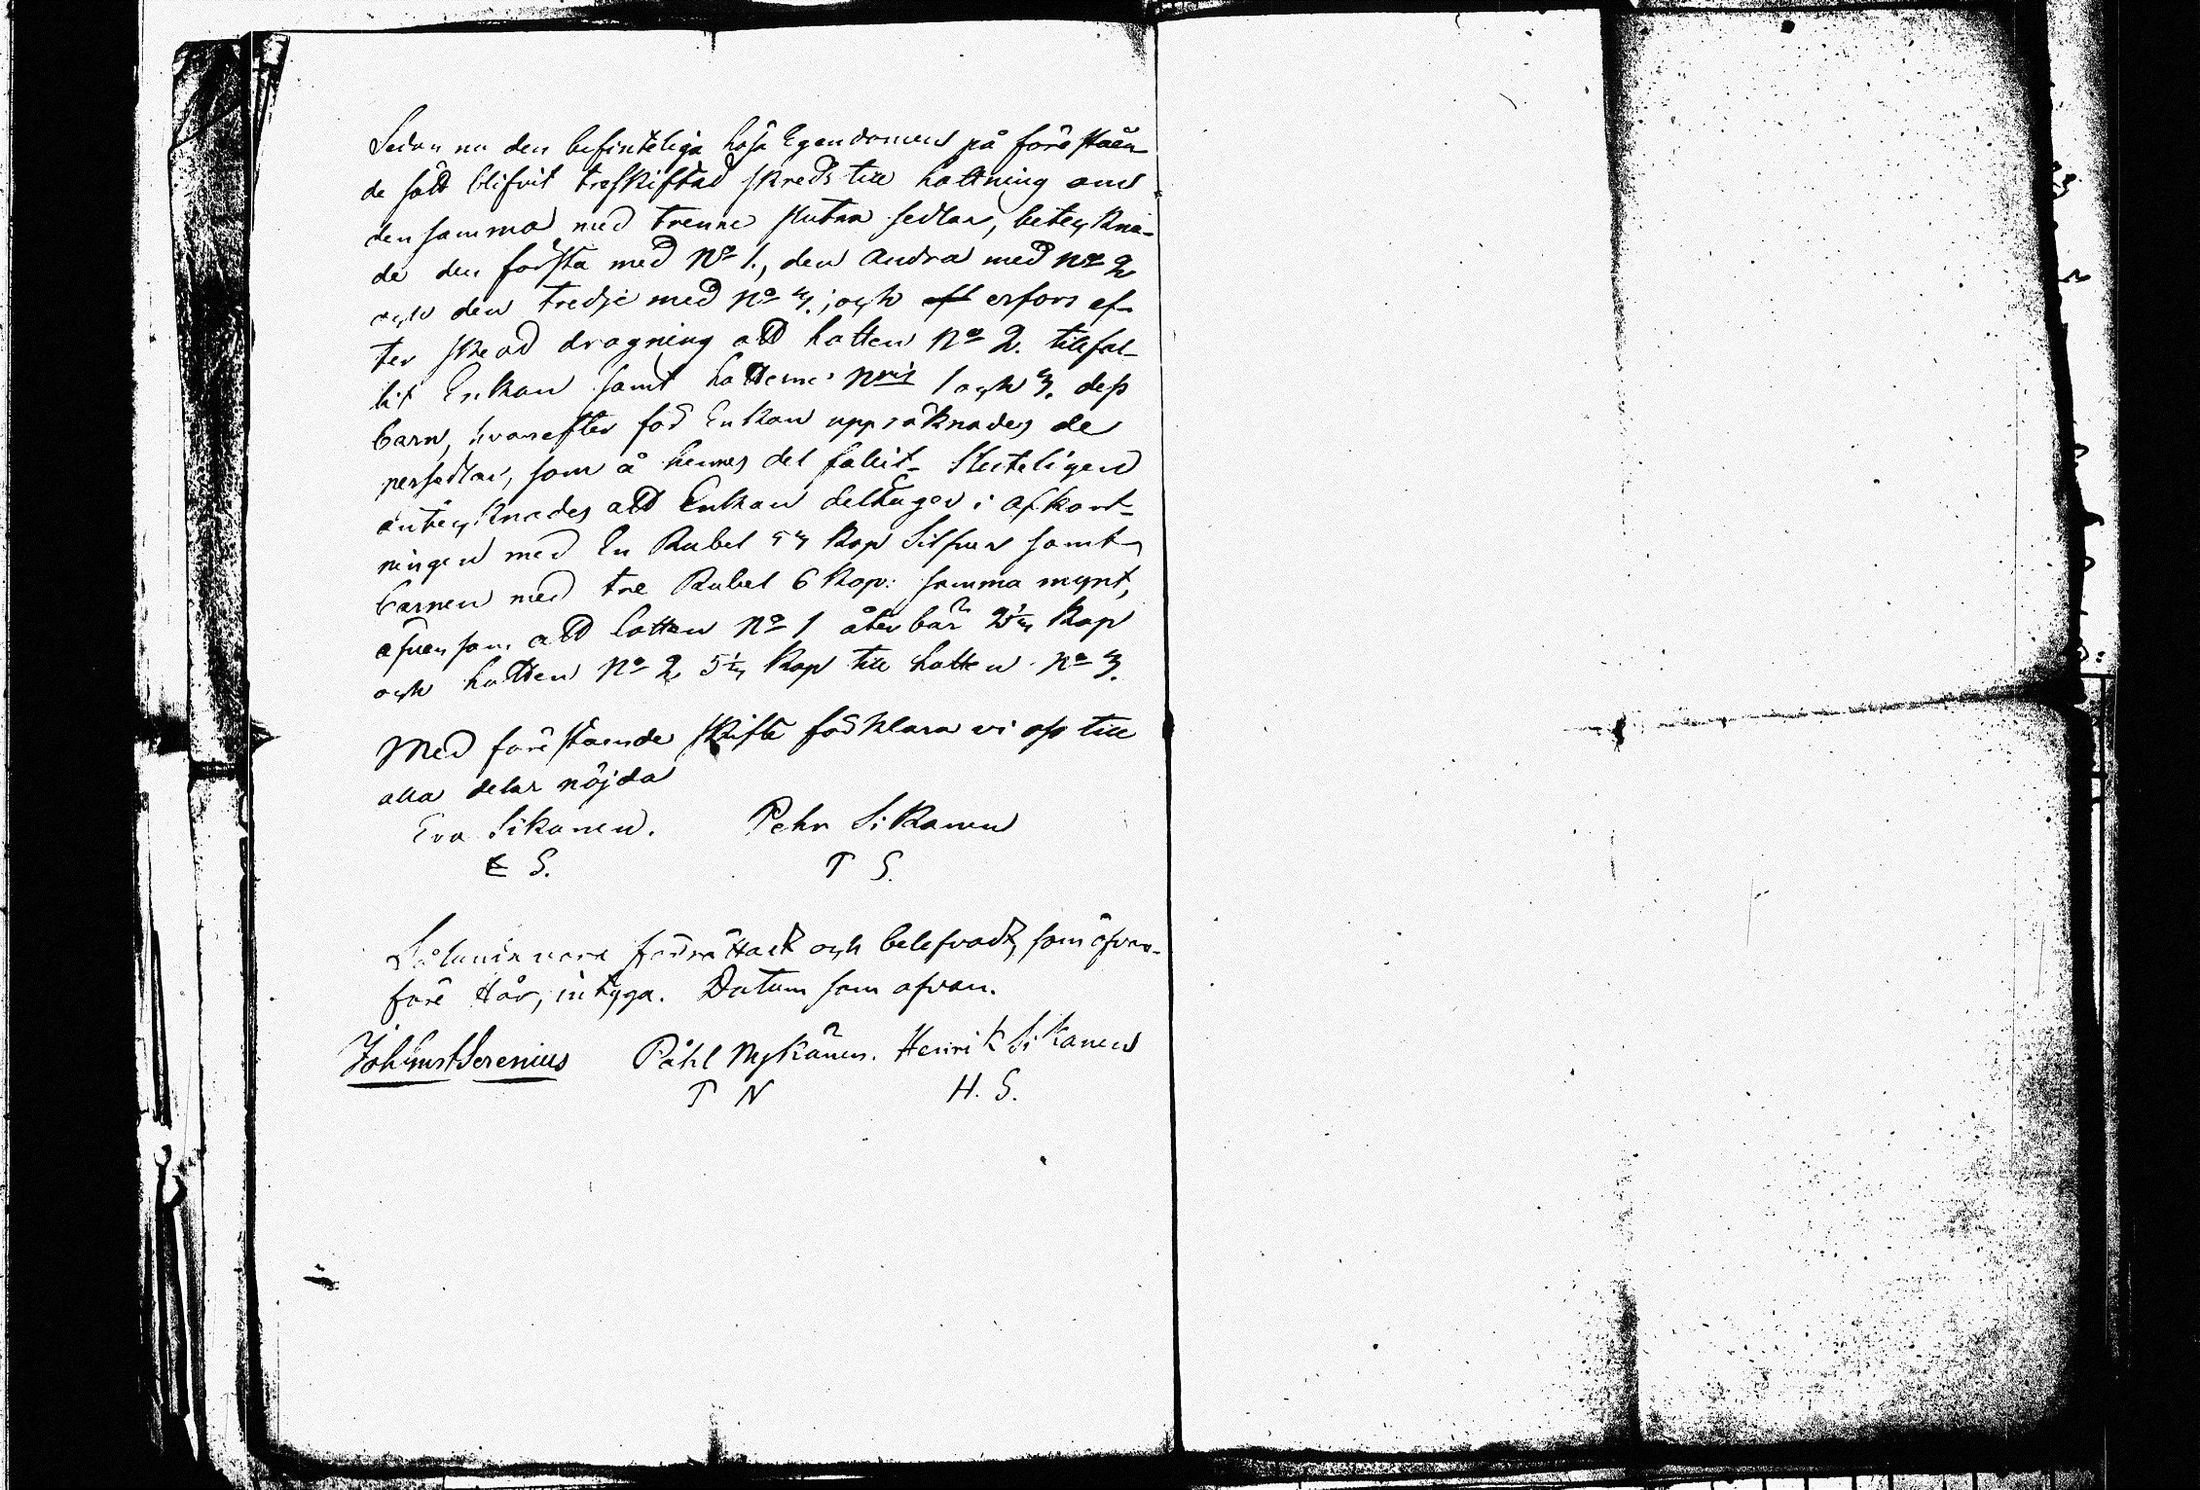 Sedan nu den befinteliga lösa Egendomens på föreståen-
de sätt blifvit treskiftad skreds till lottning om
densamma med trenne slutna sedlar, beteckna-
de den första med No 1., den Andra med No 2
och den tredje med No 3.; och erfors ef-
ter skead dragning att lotten No 2. tillfal-
lit Enkan samt lotterne Nris 1 och 3. dess
barn, hvarefter för Enkan uppräknades de
persedlar, som å hennes del fallit. Sluteligen
antecknades att Enkan deltager i afkort-
ningen med En Rubel 53 Kop Silfver samt
barnen med tre Rubel 6 Kop: samma mynt,
äfvensom att lotten No 1 återbär 2½ Kop
och lotten No 2 5½ Kop till lotten No 3.
Med förestående skifte förklara vi oss till
alla delar nöjda
Eva Sikanen. Pehr Sikanen
E S. P S.
Sålunda vara förrättadt och belefvadt, som ofvan-
före står, intyga. Datum som ofvan.
Joh Ernst Serenius Påhl Nykänen. Henrik Sikanen
P N H. S.